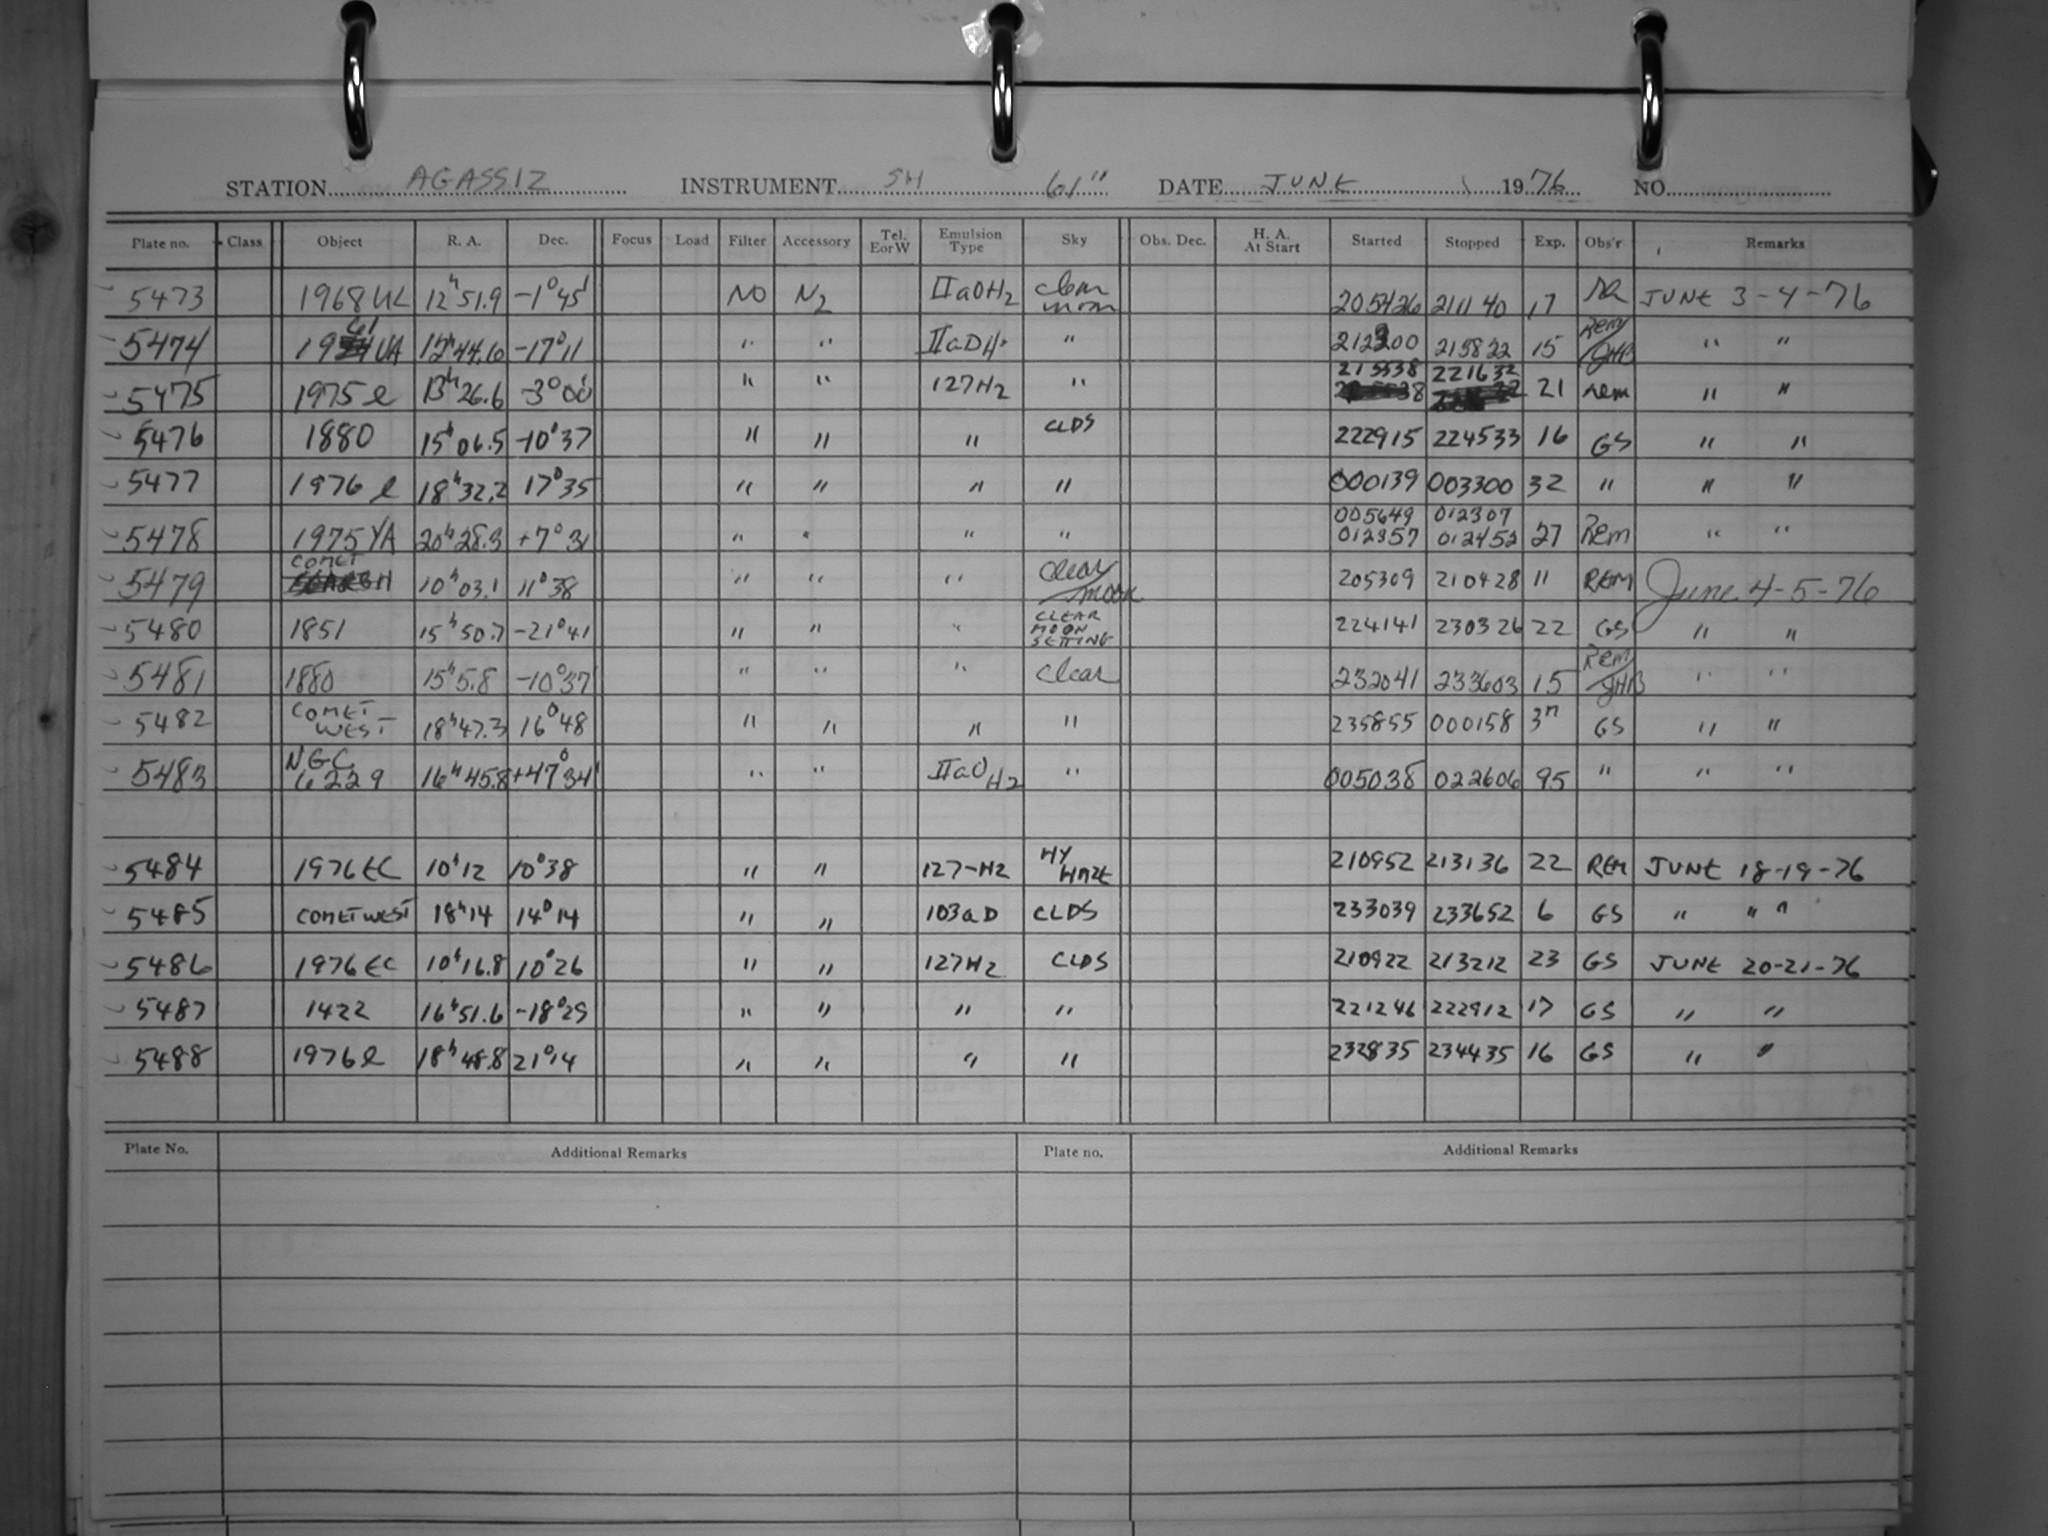 STATION AGASSIZ INSTRUMENT SH 61" DATE JUNE 1976 NO.
Plate no. Class Object R. A. Dec. Focus Load Filter Accessory Tel. EorW Emulsion Type Sky Obs. Dec. H. A. At Start Started Stopped Exp. Obs'r Remarks
5473 12ʰ51.9 -1°45' NO N2 IIaOH2 205426 211140 17 JUNE 3-4-76
5474 -17°11 " " " 212900 15 Rem/JHB " "
5475 1975 l 13ʰ26.6 -3°00' " " 127H2 " 215538 221632 21 Rem " "
5476 1880 15ʰ06.5 -10°37 " " " CLDS 222915 224533 16 GS " "
5477 1976 l 18ʰ32.2 17°35 " " " " 000139 003300 32 " " "
5478 1975 YA 20ʰ28.3 +7°31 " " " " 005649 012307 012357 012452 27 Rem " "
5479 COMET 10ʰ03.1 11°38 " " " Clear/moon 205309 210428 11 REM June 4-5-76
5480 1851 15ʰ50.7 -21°41 " " " CLEAR MOON SETTING 224141 230326 22 GS " "
5481 1880 15ʰ5.8 -10°37 " " " Clear 232041 233603 15 Rem/JHB " "
5482 COMET WEST 18ʰ47.3 16°48 " " " " 235855 000158 3ᵐ GS " "
5483 NGC 6229 16ʰ45.8 +47°34' " " IIaO H2 " 005038 022606 95 " " "
5484 1976 EC 10ʰ12 10°38 " " 127-H2 HY HAZE 210952 213136 22 REM JUNE 18-19-76
5485 COMET WEST 18ʰ14 14°14 " " 103aD CLDS 233039 233652 6 GS " " "
5486 1976 EC 10ʰ16.8 10°26 " " 127H2 CLDS 210922 213212 23 GS JUNE 20-21-76
5487 1422 16ʰ51.6 -18°29 " " " " 221246 222912 17 GS " "
5488 1976 l 18ʰ48.8 21°14 " " " " 232835 234435 16 GS " "
Plate No. Additional Remarks Plate no. Additional Remarks